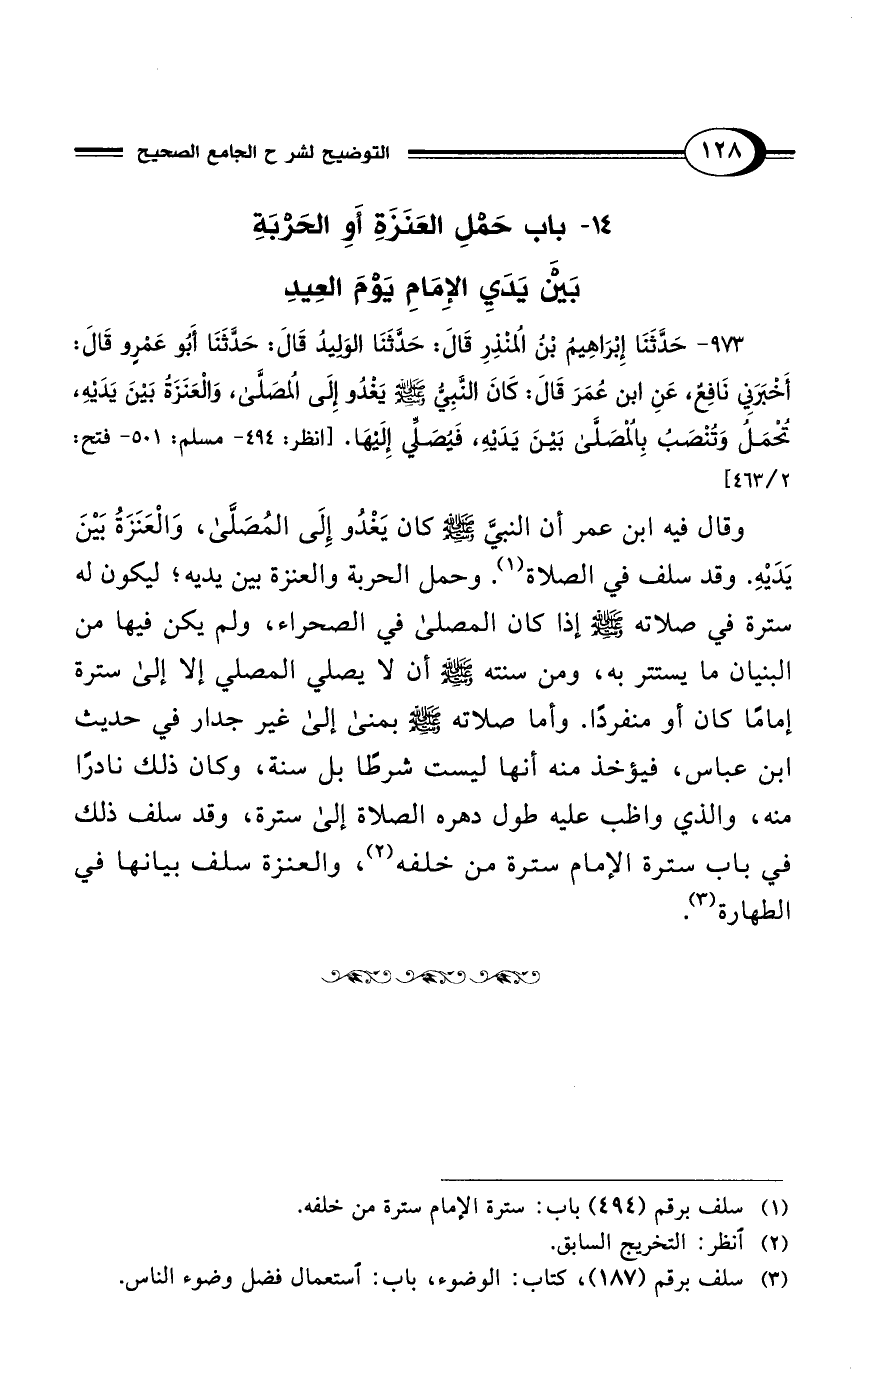 ١٢٨ التوضيح لشرح الجامع الصحيح
١٤- باب حَمْلِ العَنَزَةِ أَوِ الحَرْبَةِ
بَيْنَ يَدَيِ الإِمَامِ يَوْمَ العِيدِ
٩٧٣- حَدَّثَنَا إِبْرَاهِيمُ بْنُ المُنْذِرِ قَالَ: حَدَّثَنَا الوَلِيدُ قَالَ: حَدَّثَنَا أَبُو عَمْرٍو قَالَ:
أَخْبَرَنِي نَافِعٌ، عَنِ ابن عُمَرَ قَالَ: كَانَ النَّبِيُّ ﷺ يَغْدُو إِلَى المُصَلَّىٰ، وَالْعَنَزَةُ بَيْنَ يَدَيْهِ،
تُحْمَلُ وَتُنْصَبُ بِالْمُصَلَّىٰ بَيْنَ يَدَيْهِ، فَيُصَلِّي إِلَيْهَا. [انظر: ٤٩٤- مسلم: ٥٠١- فتح:
٢/ ٤٦٣]
وقال فيه ابن عمر أن النبيَّ ﷺ كان يَغْدُو إِلَى المُصَلَّىٰ، وَالْعَنَزَةُ بَيْنَ
يَدَيْهِ. وقد سلف في الصلاة(١). وحمل الحربة والعنزة بين يديه؛ ليكون له
سترة في صلاته ﷺ إذا كان المصلىٰ في الصحراء، ولم يكن فيها من
البنيان ما يستتر به، ومن سنته ﷺ أن لا يصلي المصلي إلا إلىٰ سترة
إمامًا كان أو منفردًا. وأما صلاته ﷺ بمنىٰ إلىٰ غير جدار في حديث
ابن عباس، فيؤخذ منه أنها ليست شرطًا بل سنة، وكان ذلك نادرًا
منه، والذي واظب عليه طول دهره الصلاة إلىٰ سترة، وقد سلف ذلك
في باب سترة الإمام سترة من خلفه(٢)، والعنزة سلف بيانها في
الطهارة(٣).
(١) سلف برقم (٤٩٤) باب: سترة الإمام سترة من خلفه.
(٢) ٱنظر: التخريج السابق.
(٣) سلف برقم (١٨٧)، كتاب: الوضوء، باب: ٱستعمال فضل وضوء الناس.